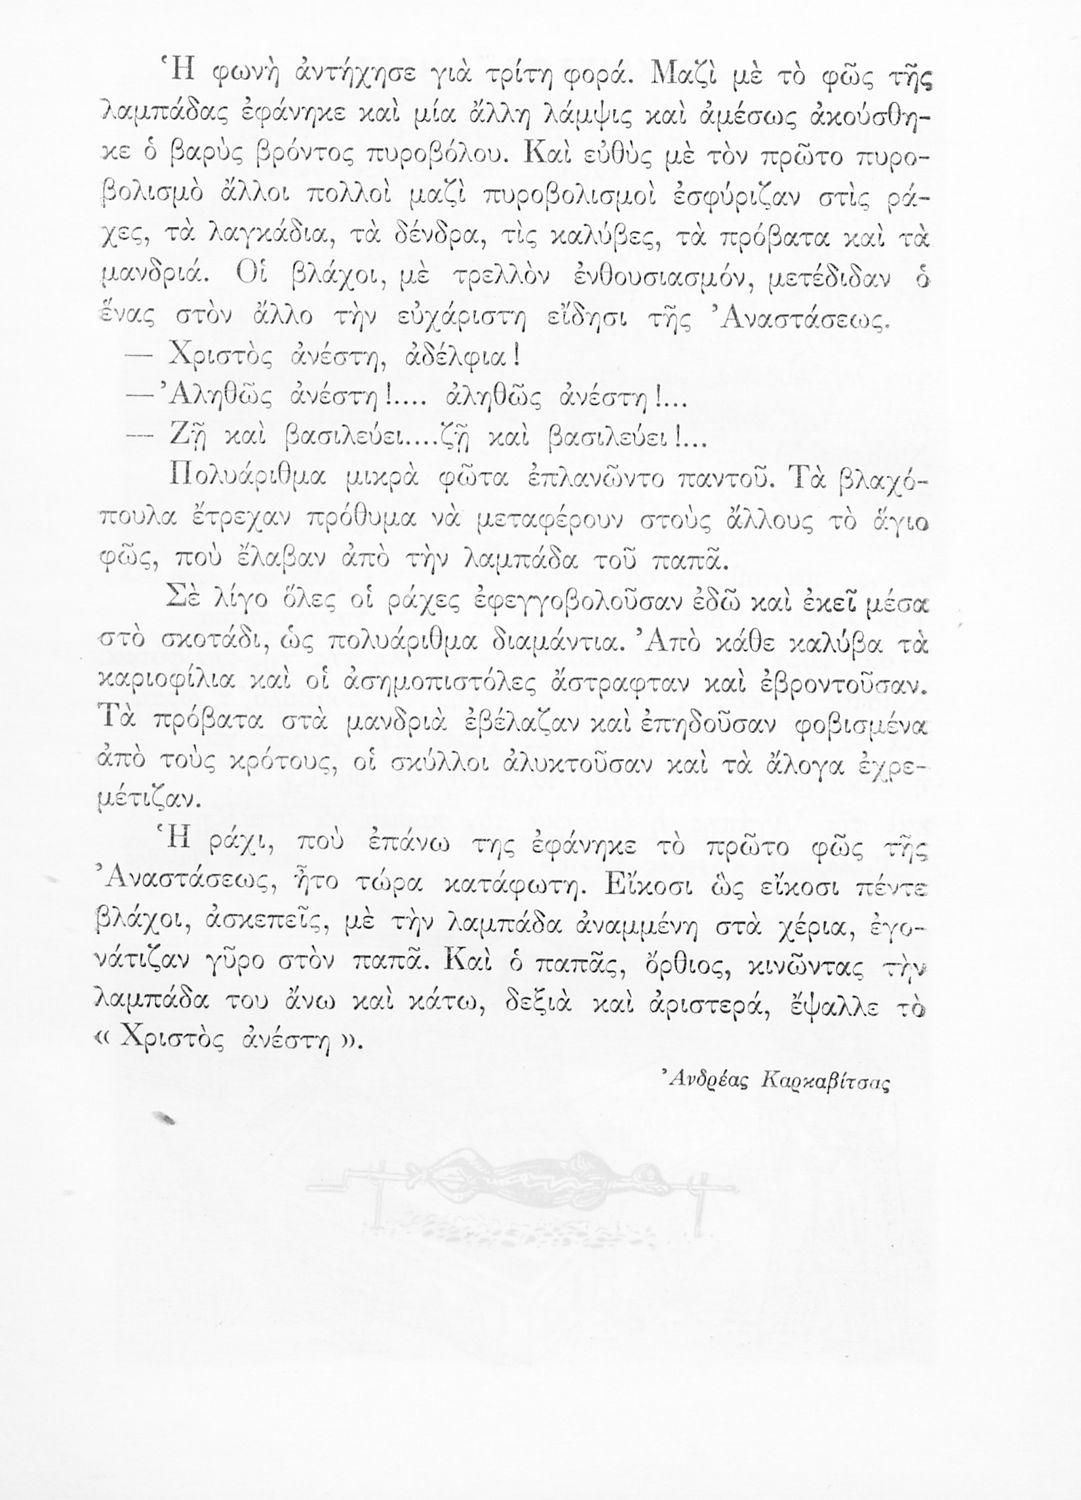 Ἡ φωνὴ ἀντήχησε γιὰ τρίτη φορά. Μαζὶ μὲ τὸ φῶς τῆς
λαμπάδας ἐφάνηκε καὶ μία ἄλλη λάμψις καὶ ἀμέσως ἀκούσθη-
κε ὁ βαρὺς βρόντος πυροβόλου. Καὶ εὐθὺς μὲ τὸν πρῶτο πυρο-
βολισμὸ ἄλλοι πολλοὶ μαζὶ πυροβολισμοὶ ἐσφύριζαν στὶς ρά-
χες, τὰ λαγκάδια, τὰ δένδρα, τὶς καλύβες, τὰ πρόβατα καὶ τὰ
μανδριά. Οἱ βλάχοι, μὲ τρελλὸν ἐνθουσιασμόν, μετέδιδαν ὁ
ἕνας στὸν ἄλλο τὴν εὐχάριστη εἴδησι τῆς Ἀναστάσεως.
— Χριστὸς ἀνέστη, ἀδέλφια!
— Ἀληθῶς ἀνέστη!.... ἀληθῶς ἀνέστη!...
— Ζῇ καὶ βασιλεύει....ζῇ καὶ βασιλεύει!...
Πολυάριθμα μικρὰ φῶτα ἐπλανῶντο παντοῦ. Τὰ βλαχό-
πουλα ἔτρεχαν πρόθυμα νὰ μεταφέρουν στοὺς ἄλλους τὸ ἅγιο
φῶς, ποὺ ἔλαβαν ἀπὸ τὴν λαμπάδα τοῦ παπᾶ.
Σὲ λίγο ὅλες οἱ ράχες ἐφεγγοβολοῦσαν ἐδῶ καὶ ἐκεῖ μέσα
στὸ σκοτάδι, ὡς πολυάριθμα διαμάντια. Ἀπὸ κάθε καλύβα τὰ
καριοφίλια καὶ οἱ ἀσημοπιστόλες ἄστραφταν καὶ ἐβροντοῦσαν.
Τὰ πρόβατα στὰ μανδριὰ ἐβέλαζαν καὶ ἐπηδοῦσαν φοβισμένα
ἀπὸ τοὺς κρότους, οἱ σκύλλοι ἀλυκτοῦσαν καὶ τὰ ἄλογα ἐχρε-
μέτιζαν.
Ἡ ράχι, ποὺ ἐπάνω της ἐφάνηκε τὸ πρῶτο φῶς τῆς
Ἀναστάσεως, ἦτο τώρα κατάφωτη. Εἴκοσι ὣς εἴκοσι πέντε
βλάχοι, ἀσκεπεῖς, μὲ τὴν λαμπάδα ἀναμμένη στὰ χέρια, ἐγο-
νάτιζαν γῦρο στὸν παπᾶ. Καὶ ὁ παπᾶς, ὄρθιος, κινῶντας τὴν
λαμπάδα του ἄνω καὶ κάτω, δεξιὰ καὶ ἀριστερά, ἔψαλλε τὸ
« Χριστὸς ἀνέστη ».
Ἀνδρέας Καρκαβίτσας